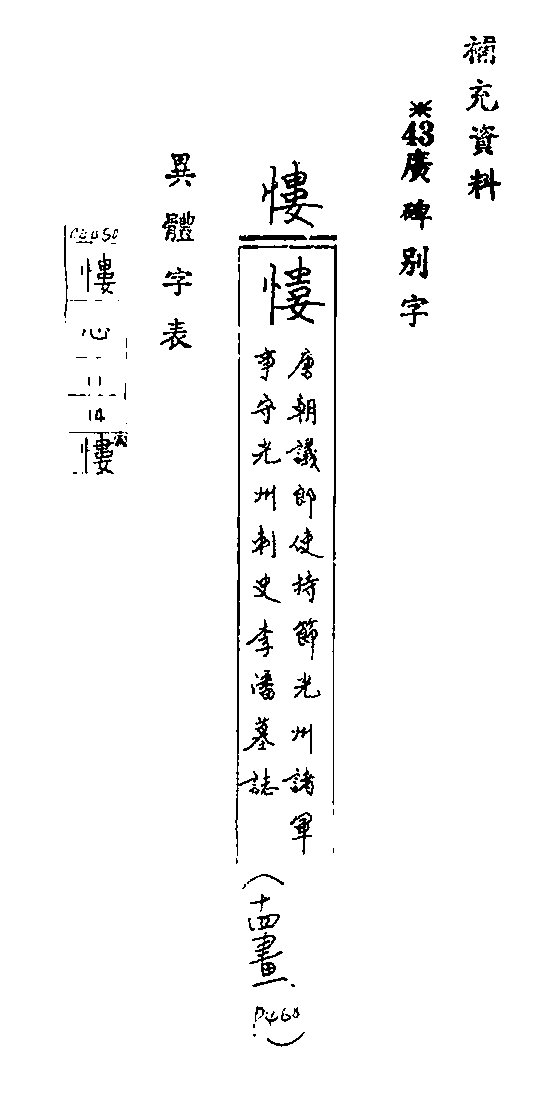 補充資料
※43廣碑別字
慺
慺
唐朝議郎使持節光州諸軍
事守光州刺史李潘墓誌
（十四畫
P460）
異體字表
慺
心
11
14
慺